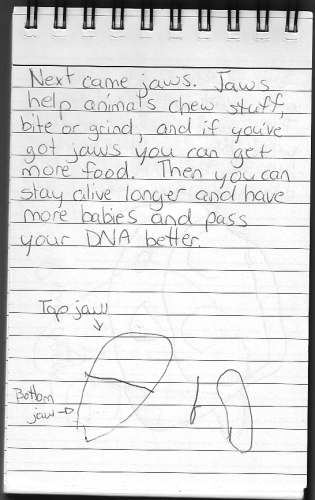 Next came jaws. Jaws
help animals chew stuff,
bite or grind, and if you've
got jaws you can get
more food. Then you can
stay alive longer and have
more babies and pass
your DNA better.
Top jaw
Bottom
jaw